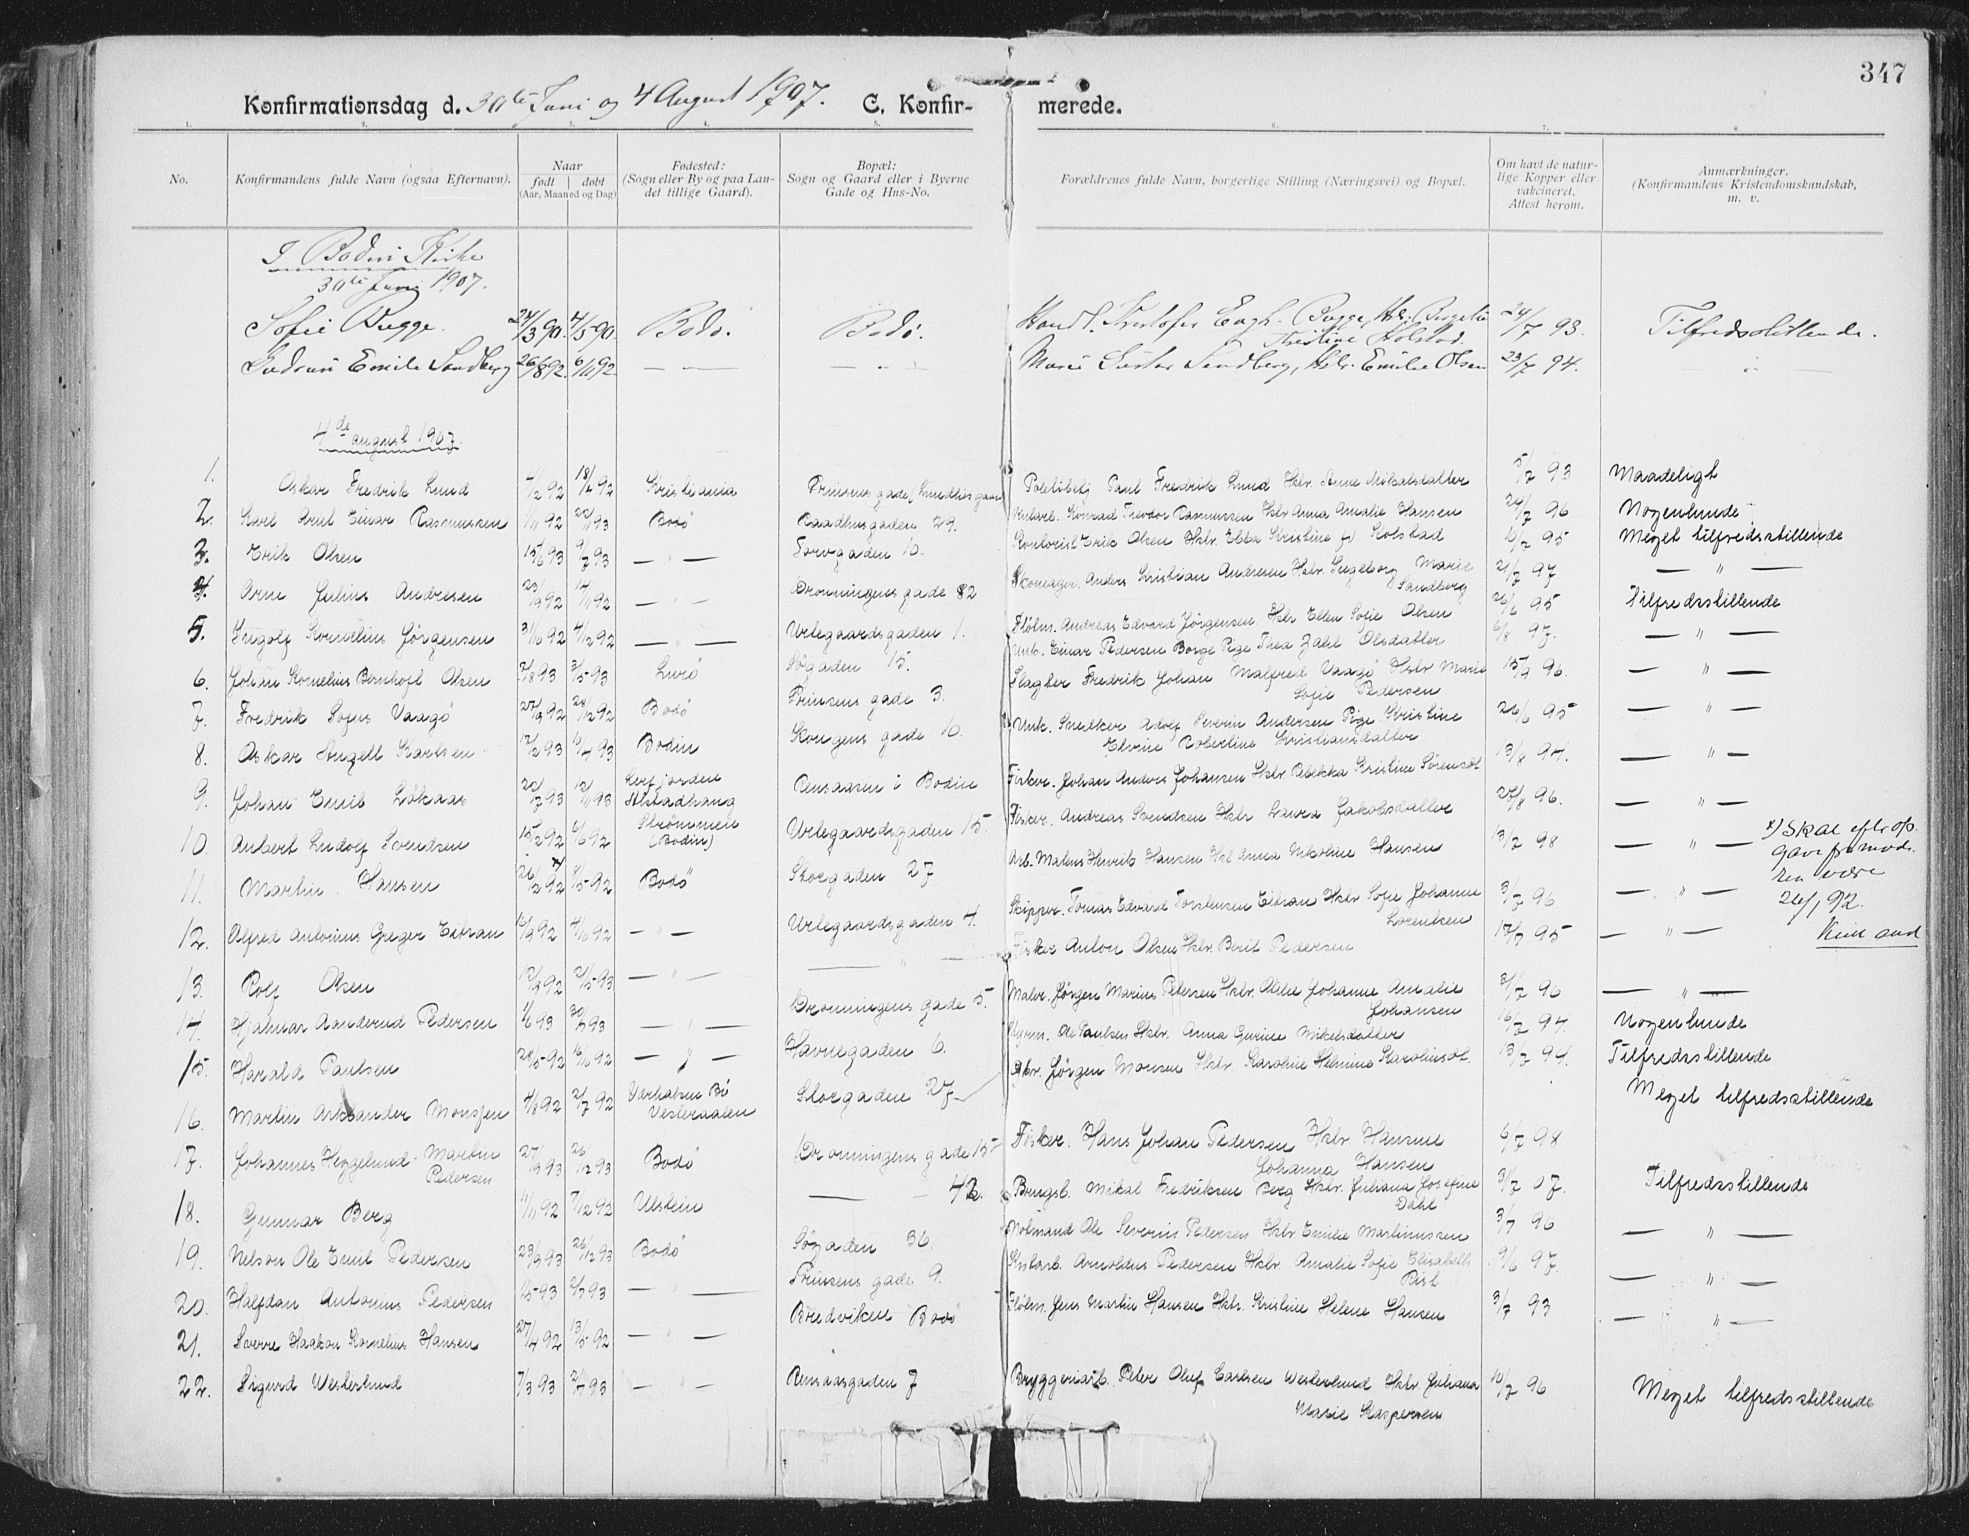 347
Konfirmationsdag d. 30te Juni og 4 August 1907. C. Konfirmerede.
1. 2. 3. 4. 5. 6. 7. 8.
No. Konfirmandens fulde Navn (ogsaa Efternavn). Naar født døbt (Aar, Maaned og Dag) Fødested: (Sogn eller By og paa Landet tillige Gaard). Bopæl: Sogn og Gaard eller i Byerne Gade og Hus-No. Forældrenes fulde Navn, borgerlige Stilling (Næringsvei) og Bopæl. Om havt de naturlige Kopper eller vakcineret. Attest herom. Anmærkninger. (Konfirmandens Kristendomskundskab, m. v.
I Bodin Kirke
30te Juni 1907.
Sofie Bugge. 24/3 90. 4/5 90. Bodø. Bodø. Handl. Kristofer Engh. Bugge, Hstr. Kristine Kolstad. 24/7 93. Tilfredsstillende.
Gudrun Emilie Sandberg 26/8 92. 6/11 92 — — — " — Gustav Sandberg, Hstr. Emilie Olsen 23/7 94. — " —
4de august 1907.
1. Oskar Fredrik Lund 4/2 92 18/4 92 Kristiania Prinsens gade Politibetj Paul Fredrik Lund Hstr Anne Mikalsdatter 5/7 93 Maadeligt
2. Karl Arnt Einar Rasmussen 1/11 92 22/1 93 Bodø Raadhusgaden 29. Konrad Teodor Rasmussen Hstr Anna Amalie Hansen 24/7 96 Nogenlunde
3. Erik Olsen 15/6 93 9/7 93 — " — Torvgaden 10. Kontorist Erik Olsen Hstr. Ebba Kristine f. Kolstad 10/7 95 Meget tilfredsstillende
4. Arne Julius Andresen 23/9 92 14/11 92 — " — Dronningens gade 82 Skomager. Anders Kristian Andresen Hstr. Ingeborg Marie Sandberg 21/7 97 — " —
5. Ingolf Kornelius Jørgensen 31/10 92 4/12 92 — " — Urtegaardsgaden 1. Fløtm. Andreas Edvard Jørgensen. Hstr Ellen Sofie Olsen 26/6 95 Tilfredsstillende
6. Johan Kornelius Bernhoft Olsen 2/8 93 3/5 93 Lurø Søgaden 15. Unk. Einar Pedersen Borge Pige Thea Zahl Olsdatter 6/8 97. — " —
7. Fredrik Sofus Vaagø 27/9 92 28/12 92 Bodø Prinsens gade 3. Slagter Fredrik Johan Malfred Vaagø Hstr Marie Sofie Pedersen 15/9 96. — " —
8. Oskar Angell Karlsen 12/2 93 16/4 93 Bodin Kongens gade 10. Unk. Snedker Adolf Severin Andersen Pige Kristine Elvine Robertine Kristiansdatter 26/6 95 — " —
9. Johan Emil Løkaas 22/7 93 12/11 93 Leirfjorden Alstadhaug Rensaasen i Bodin Fisker. Johan Anders Johansen Hstr. Rebekka Kristine Sørensdt 13/8 94. — " —
10. Anbert Ludolf Svendsen 15/2 92 6/6 92 Strømmen (Bodin) Urtegaardsgaden 15. Fisker. Andreas Svendsen Hstr Laura Jakobsdatter 25/8 96. — " —
11. Martin Hansen 26/2 92 x) 8/5 92 Bodø Storgaden 27 Arb. Matius Henrik Hansen Hst Anna Nikoline Hansen 13/7 98 — " — x) Skal efter opgave fra moderen være 26/1 92.
12. Alfred Antonius Greger Eitran 16/9 92 4/10 92 — " — Urtegaardsgaden 4. Skipper. Tomas Edvard Torstensen Eitran Hstr Sofie Johanne Lorentsen 3/7 96 — " —
13. Rolf Olsen 12/9 92 21/5 93 — " — — " — Fisker Anton Olsen Hstr. Berit Pedersen 17/7 95 — " —
14. Hjalmar Aanderud Pedersen 1/6 93 30/7 93 — " — Dronningens gade 5. Maler. Jørgen Marius Petersen Hstr. Alida Johanne Amalie Johansen 3/7 96 — " —
15. Harald Paulsen 28/5 92 16/10 92 — " — Havnegaden 6. Ole Paulsen Hstr. Anna Gurine Mikelsdatter 16/7 94. Nogenlunde
16. Martin Arksander Monsen 4/8 92 2/7 92 Bø Vesteraalen Storgaden 27 Jørgen Monsen Hstr. Karoline Helmine Karolinsdt. 13/7 94. Tilfredsstillende
Meget tilfredsstillende
17. Johannes Heggelund Martin Pedersen 27/9 93 26/12 93 Bodø Dronningens gade 15 Fisker. Hans Johan Pedersen Hstr. Hansine Johanna Hansen 6/7 98
18. Gunnar Berg 11/11 92 7/12 92 Ulstein — 42. Mikal Fredriksen Berg Hstr. Juliana Josefine Dahl 31/7 07. Tilfredsstillende
19. Nelson Ole Emil Pedersen 23/9 93 26/12 93 Bodø Søgaden 36. Ole Severin Pedersen Hstr Emilie Martinussen 3/7 96 — " —
20. Halfdan Antonius Pedersen 1/5 93 2/7 93 — " — Prinsens gade 9. Arnoldus Pedersen Hstr. Amalie Sofie Elisabeth Rist 9/6 97. — " —
21. Sverre Haakon Kornelius Hansen 27/4 92 13/5 92 — " — Breidviken Bodø Fløtm. Jens Martin Hansen Hstr. Kristine Helene Hansen 3/7 93 — " —
22. Sigurd Westerlund 7/3 93 2/7 93 — " — Rensaasgaden 7 Bryggeriarb. Peter Oluf Carlsen Westerlund Hstr Juliana Marie Kaspersen 10/7 96 Meget tilfredsstillende